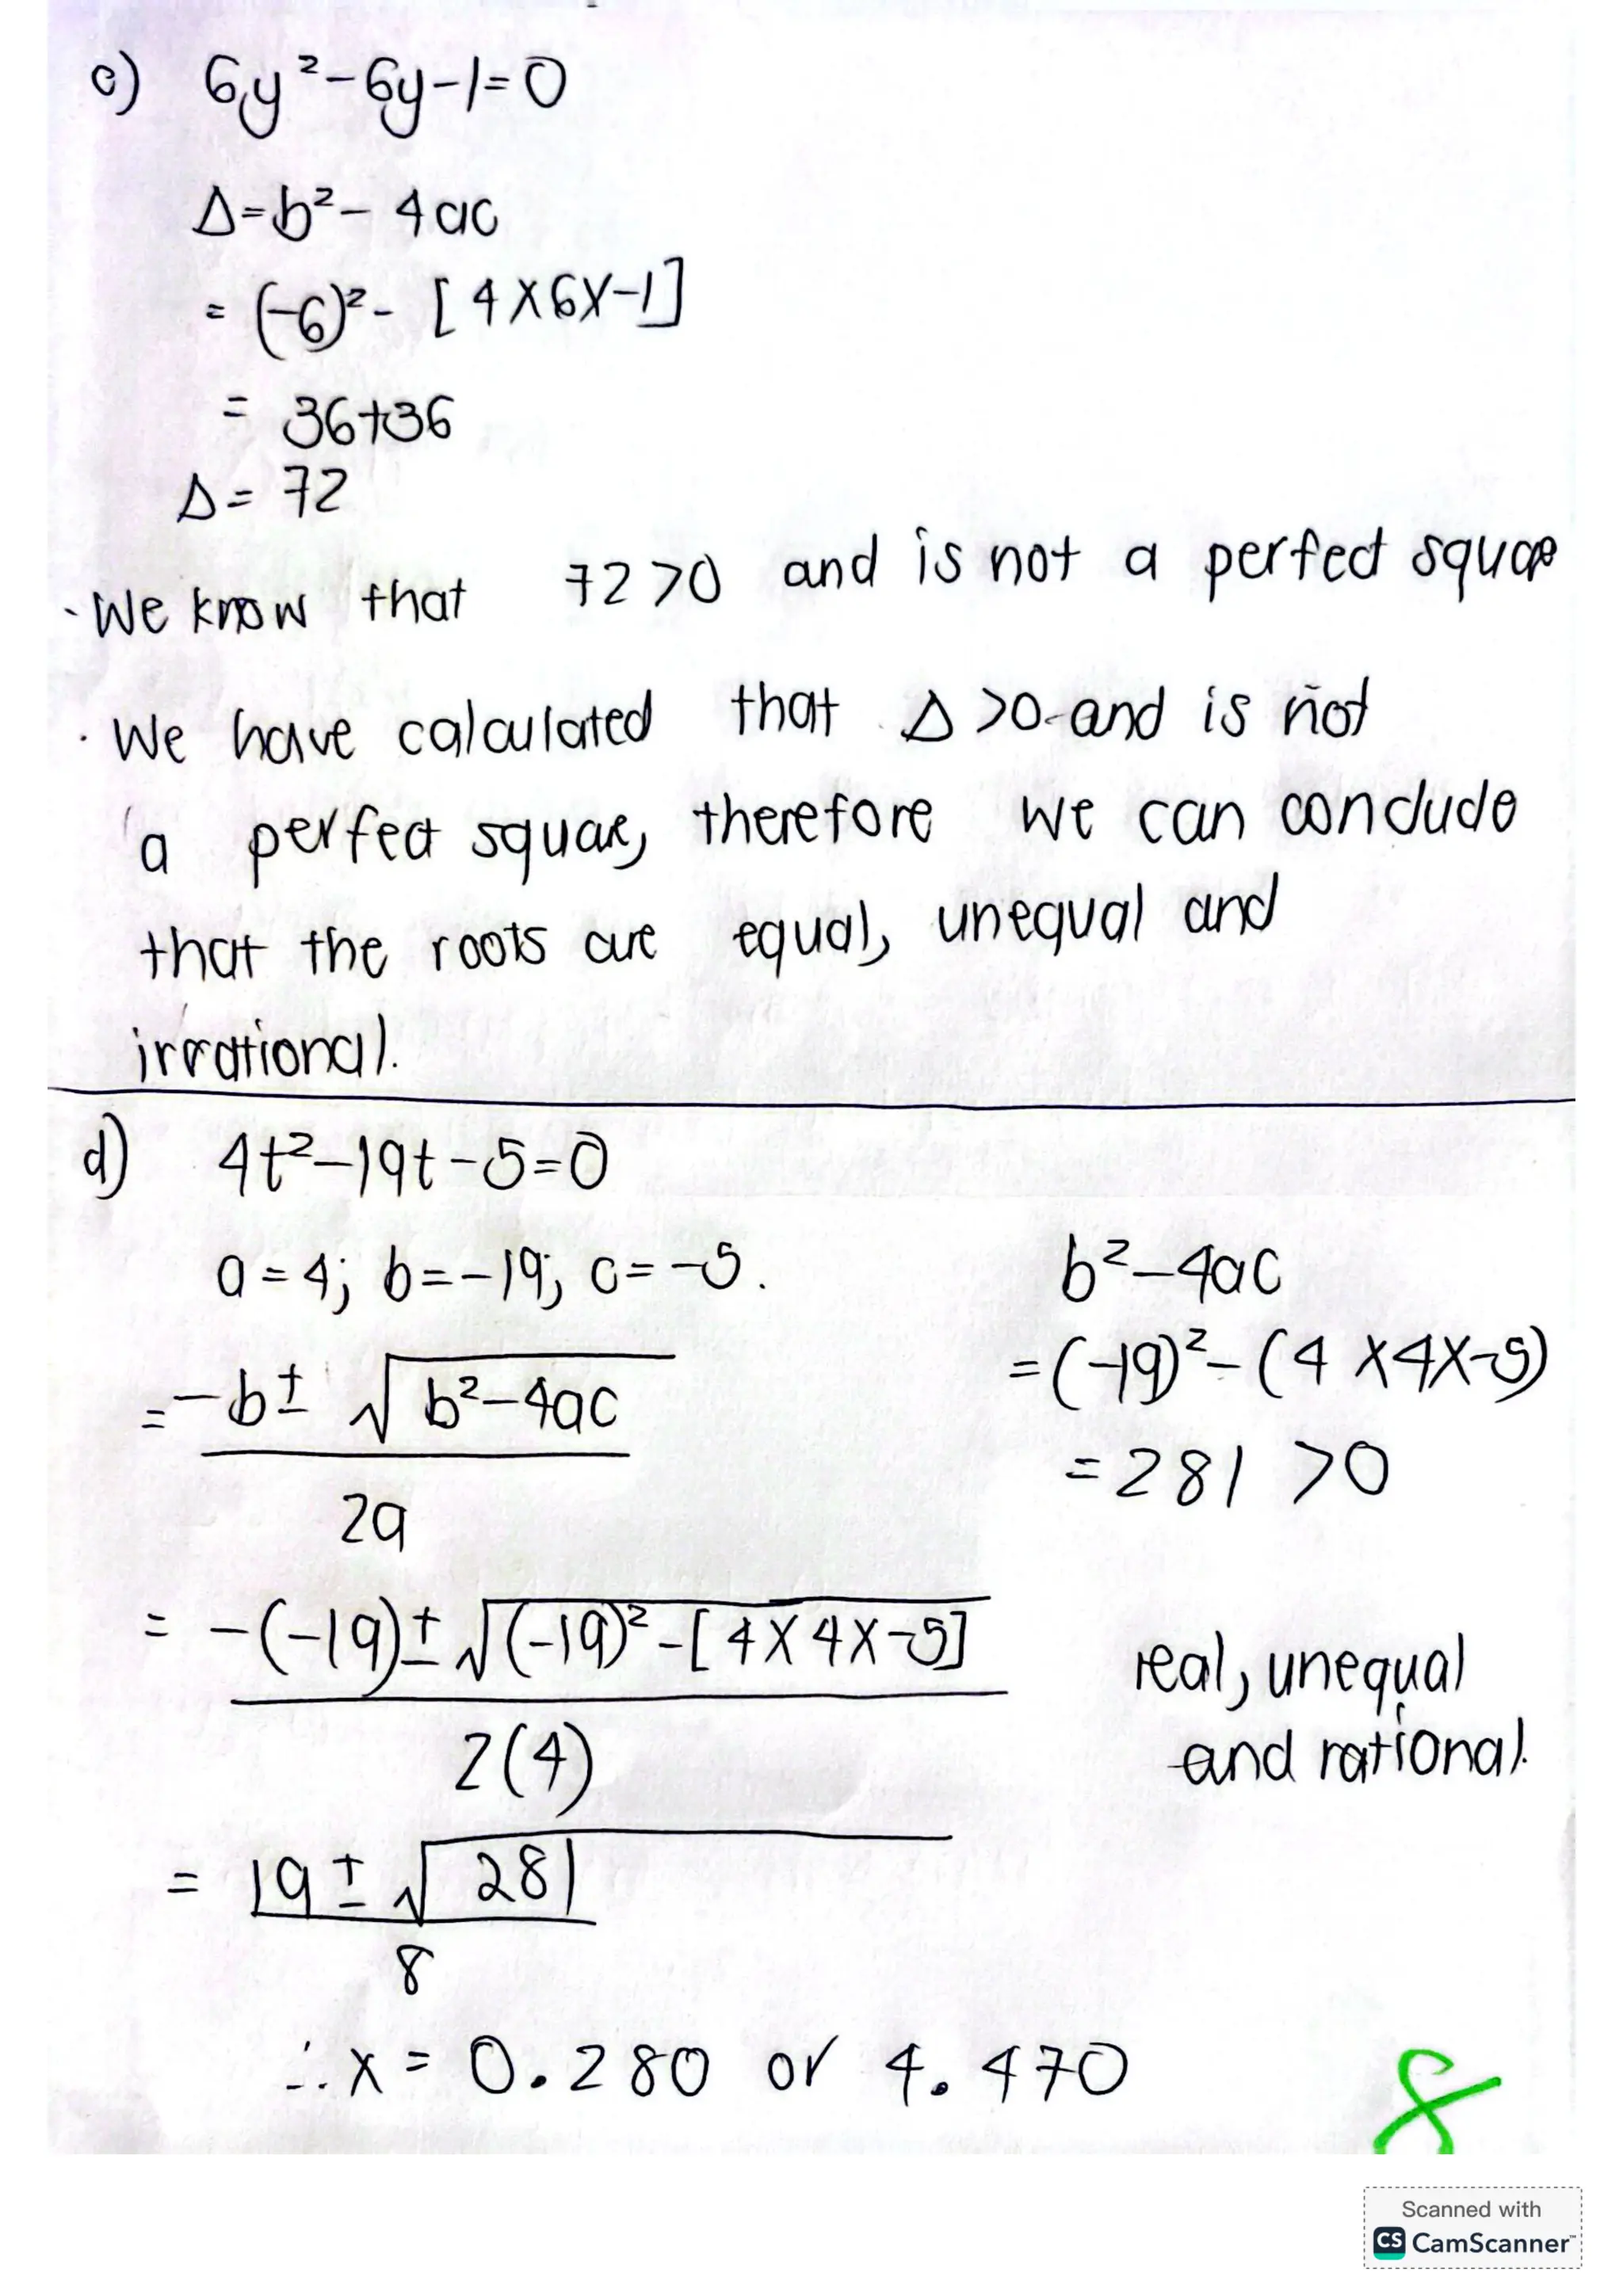 c) 6y² - 6y - 1 = 0
Δ = b² - 4ac
= (-6)² - [4 X 6 X -1]
= 36 + 36
Δ = 72
· We know that 72 > 0 and is not a perfect square
· We have calculated that Δ > 0 and is not
a perfect square, therefore we can conclude
that the roots are equal, unequal and
irrational.
d) 4t² - 19t - 5 = 0
a = 4; b = -19; c = -5.
= -b ± √b² - 4ac
2a
= -(-19) ± √(-19)² - [4 X 4 X -5]
2(4)
= 19 ± √281
8
∴ x = 0.280 or 4.470
b² - 4ac
= (-19)² - (4 X 4 X -5)
= 281 > 0
real, unequal
and rational.
8
Scanned with
CS CamScanner™